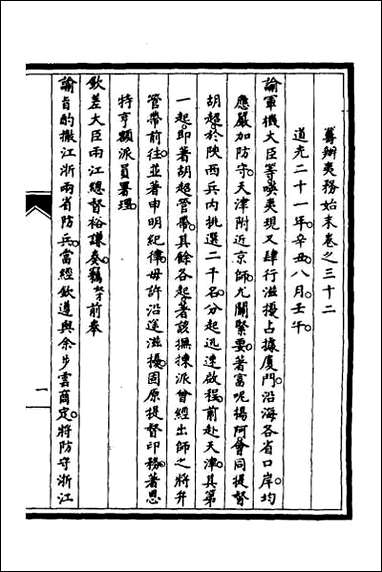 籌辦夷務始末卷之三十二
道光二十一年。辛丑。八月。壬午。
諭軍機大臣等。嘆夷現又肆行滋擾。占據廈門。沿海各省口岸。均
應嚴加防守。天津附近京師。尤關緊要。著富呢揚阿會同提督
胡超。於陝西兵內挑選二千名。分起迅速啟程。前赴天津。其第
一起。即著胡超管帶。其餘各起。著該撫揀派曾經出師之將弁
管帶前往。並著申明紀律。毋許沿途滋擾。固原提督印務。著恩
特亨額派員署理。
欽差大臣兩江總督裕謙奏。竊等前奉
諭旨酌撤江浙兩省防兵。當經欽遵與余步雲商定。將防守浙江
一